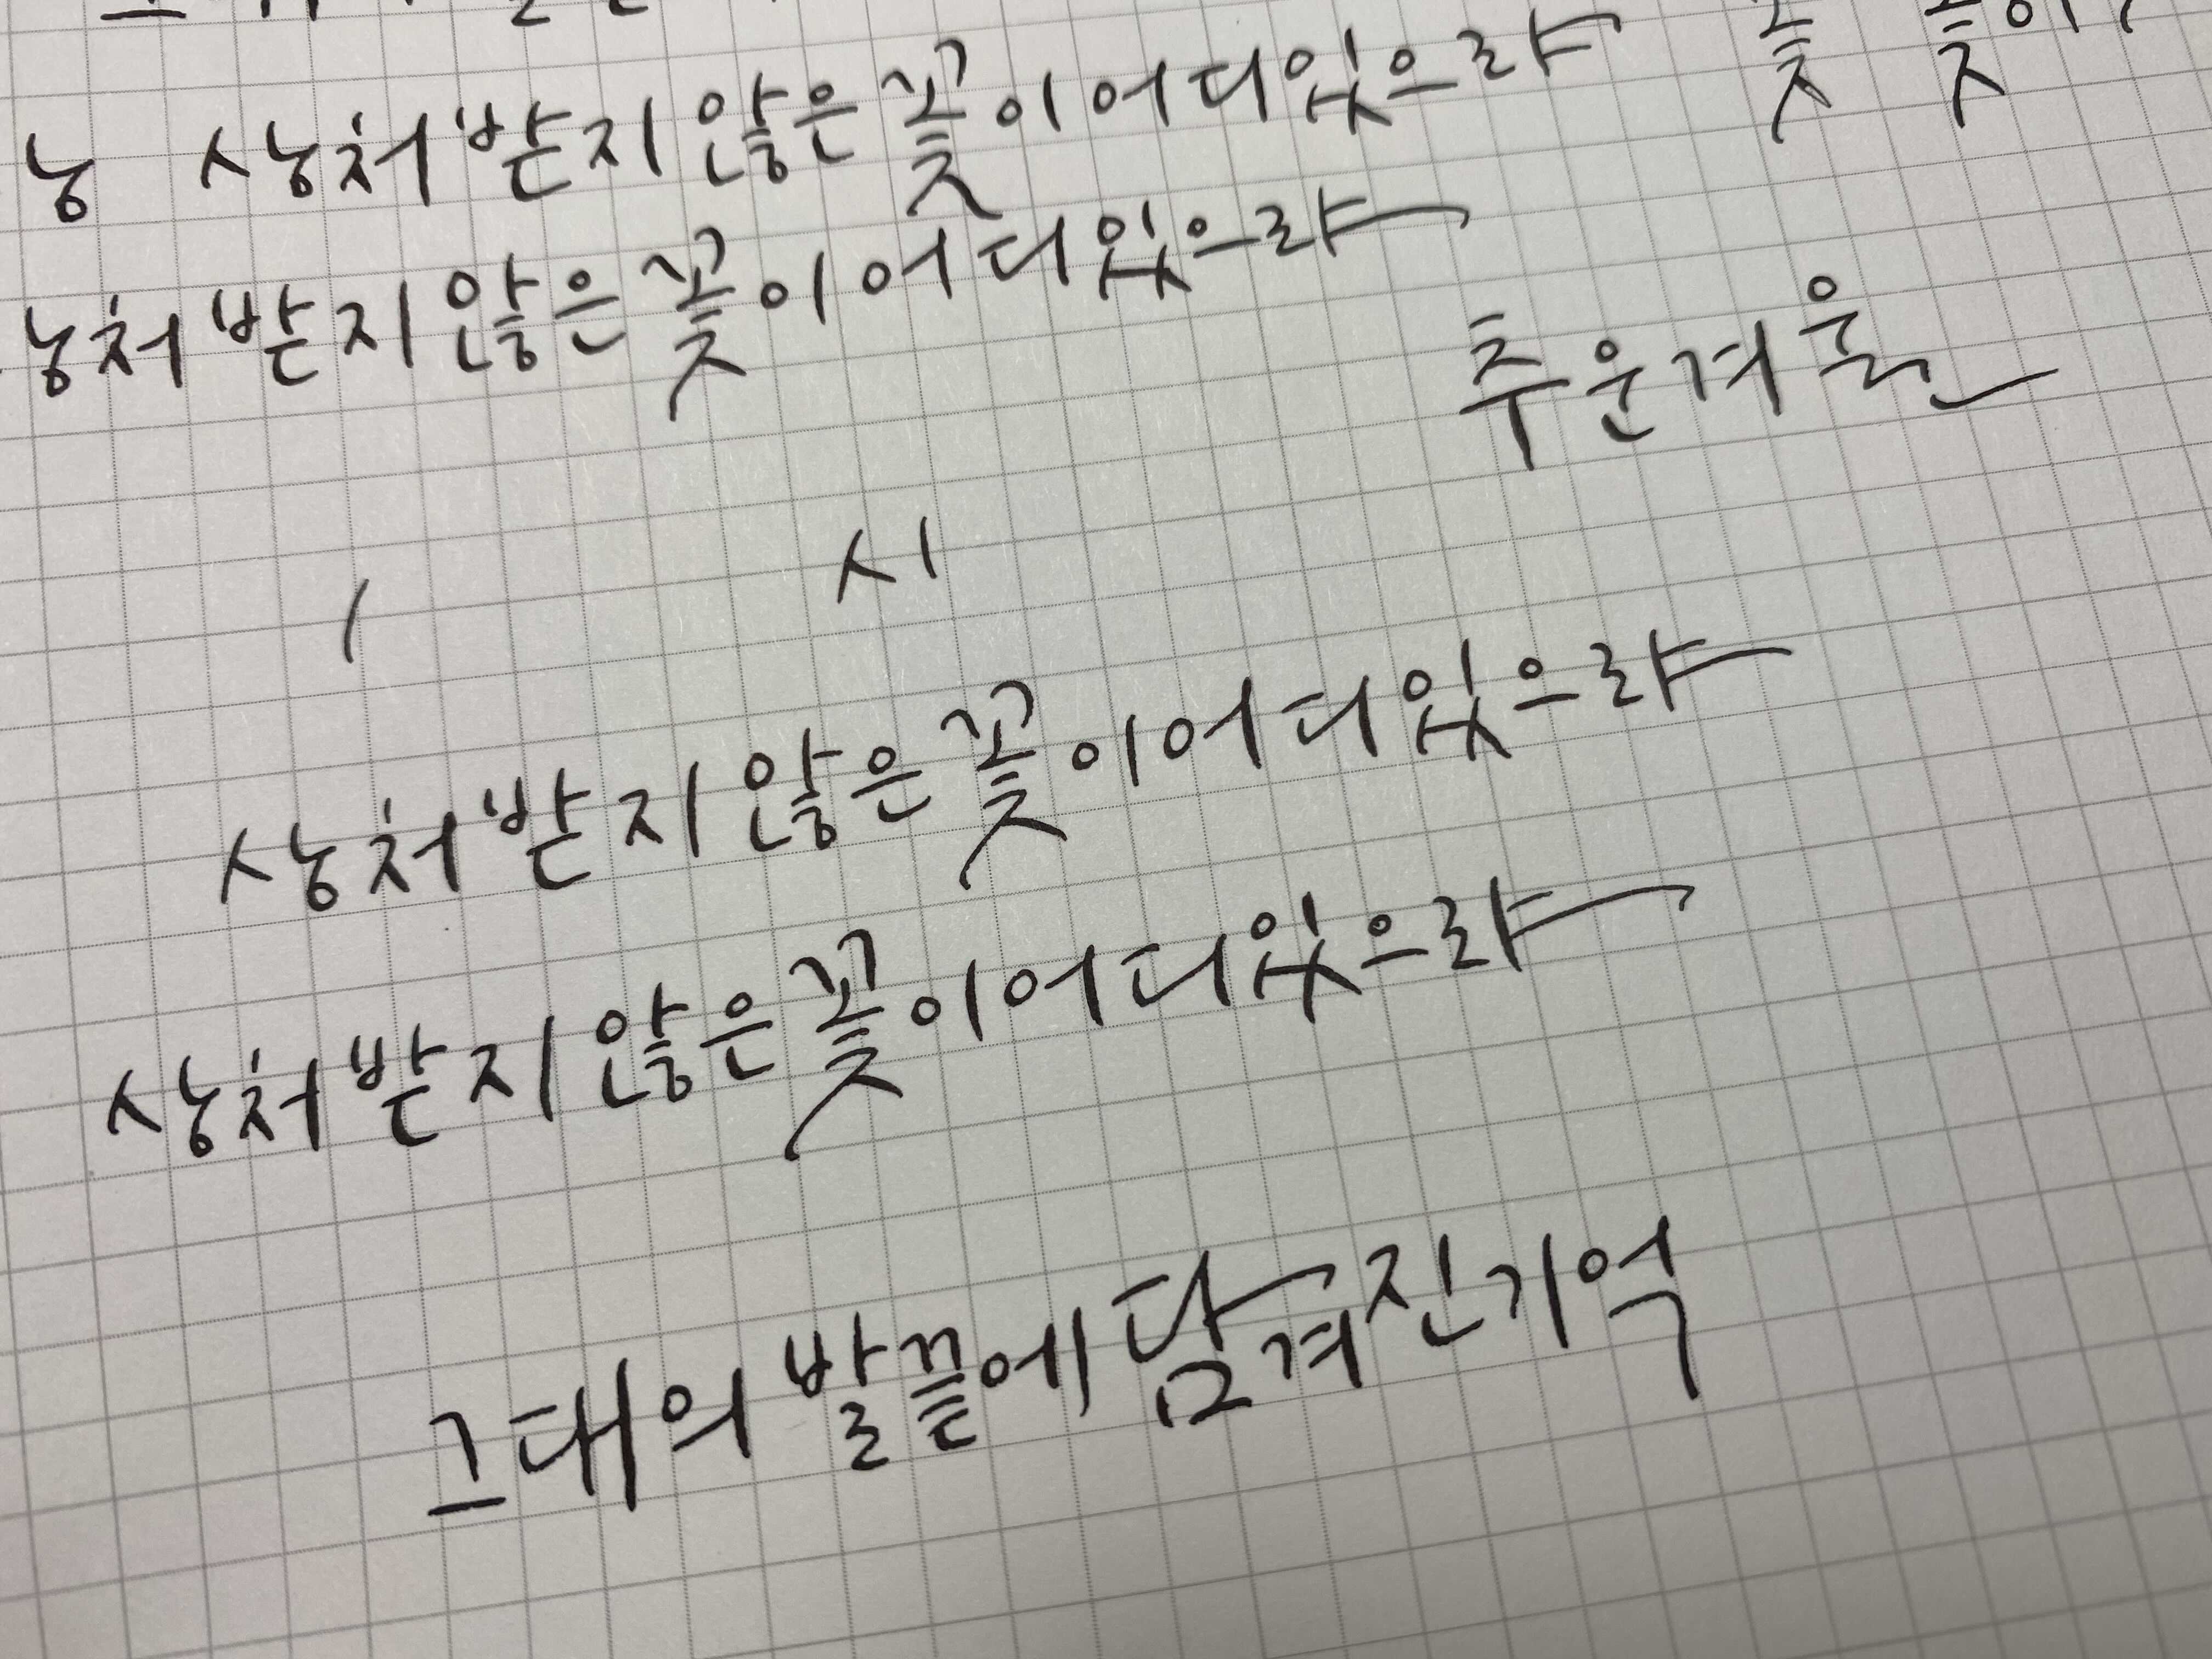 상처받지 않은 꽃이 어디 있으랴
꽃 꽃이
상처받지 않은 꽃이 어디 있으랴
추운겨울
시
상처받지 않은 꽃이 어디 있으랴
상처받지 않은 꽃이 어디 있으랴
그대의 발끝에 담겨진 기억